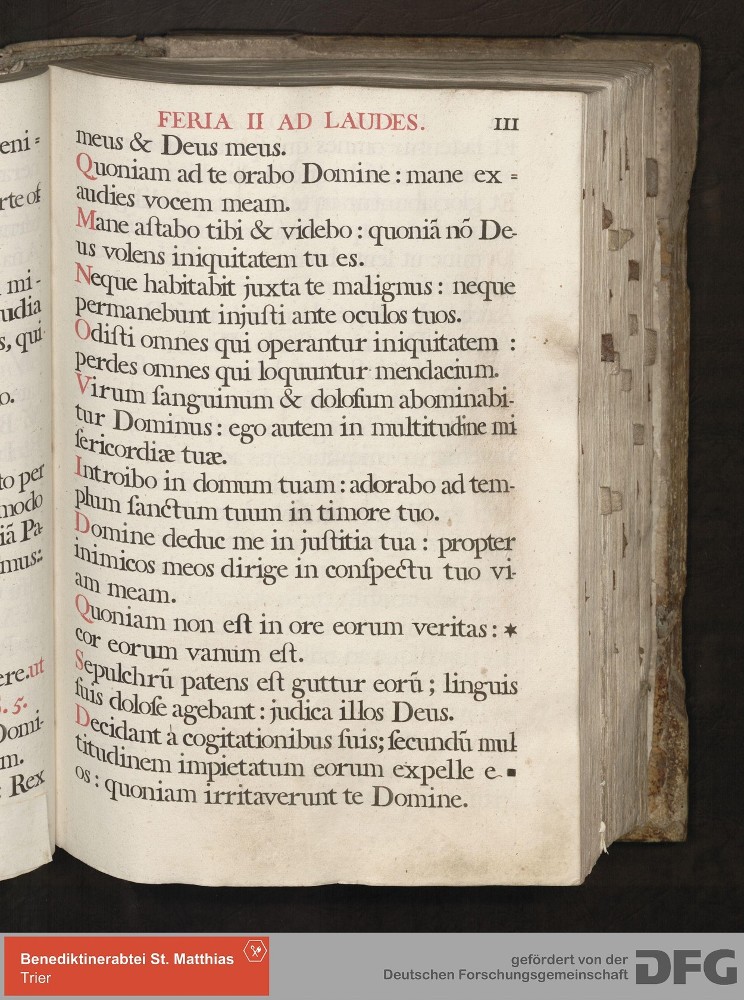 eni=
rte of
mi-
udia
s, qui
o.
to per
modo
iā Pa
mus:
ere.ut
s. 5.
Domi-
m.
: Rex
FERIA II AD LAUDES. III
meus & Deus meus.
Quoniam ad te orabo Domine : mane ex =
audies vocem meam.
Mane aſtabo tibi & videbo : quoniā nō De-
us volens iniquitatem tu es.
Neque habitabit juxta te malignus : neque
permanebunt injuſti ante oculos tuos.
Odiſti omnes qui operantur iniquitatem :
perdes omnes qui loquuntur mendacium.
Virum ſanguinum & doloſum abominabi-
tur Dominus : ego autem in multitudine mi
ſericordiæ tuæ.
Introibo in domum tuam : adorabo ad tem-
plum ſanctum tuum in timore tuo.
Domine deduc me in juſtitia tua : propter
inimicos meos dirige in conſpectu tuo vi-
am meam.
Quoniam non eſt in ore eorum veritas : *
cor eorum vanum eſt.
Sepulchrū patens eſt guttur eorū ; linguis
ſuis doloſe agebant : judica illos Deus.
Decidant à cogitationibus ſuis; ſecundū mul
titudinem impietatum eorum expelle e-
os : quoniam irritaverunt te Domine.
Benediktinerabtei St. Matthias
Trier
gefördert von der
Deutschen Forschungsgemeinschaft
DFG